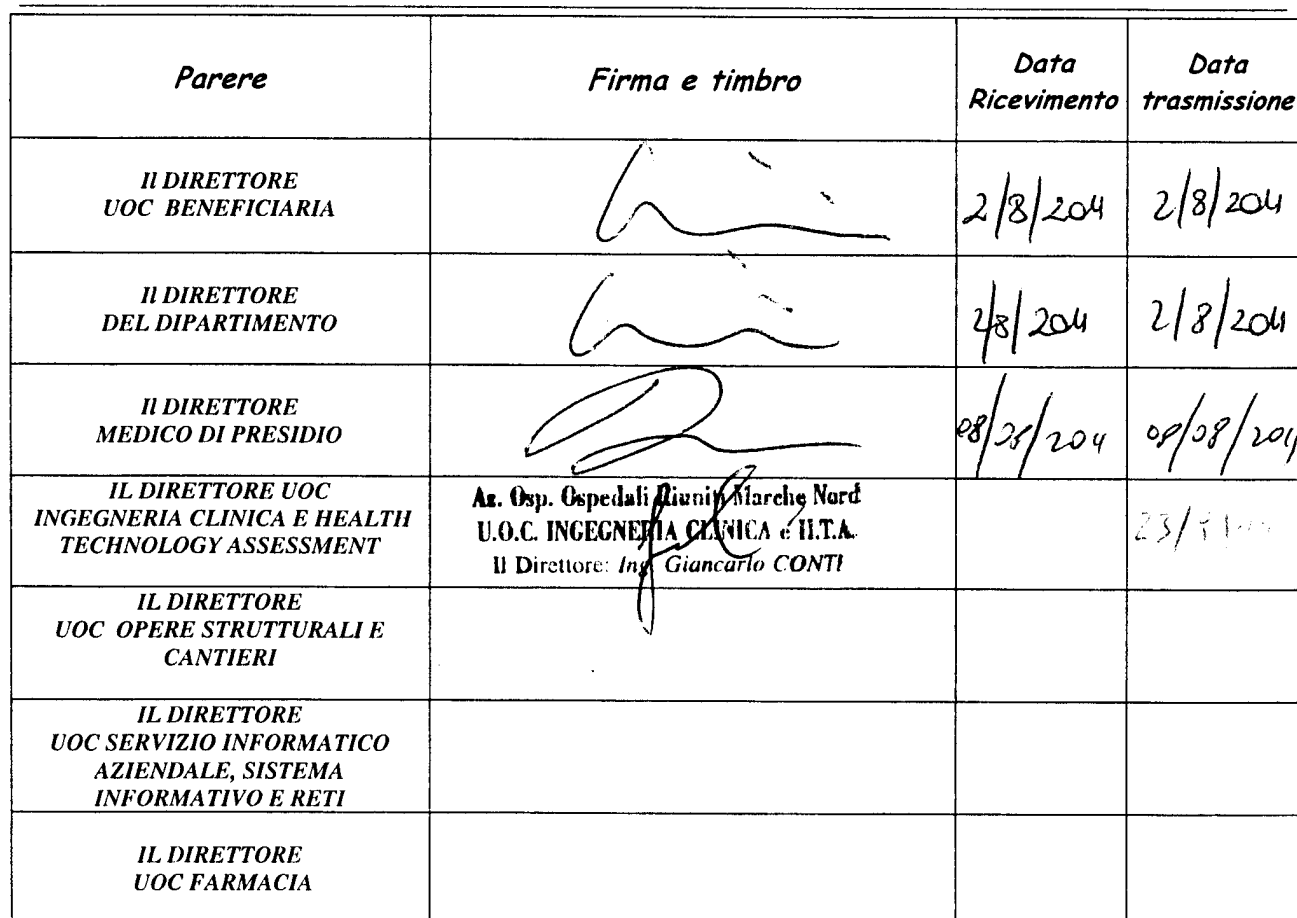 Parere
Firma e timbro
Data
Ricevimento
Data
trasmissione
Il DIRETTORE
UOC BENEFICIARIA
2/8/2011
2/8/2011
Il DIRETTORE
DEL DIPARTIMENTO
2/8/2011
2/8/2011
Il DIRETTORE
MEDICO DI PRESIDIO
08/08/2011
08/08/2011
IL DIRETTORE UOC
INGEGNERIA CLINICA E HEALTH
TECHNOLOGY ASSESSMENT
Az. Osp. Ospedali Riuniti Marche Nord
U.O.C. INGEGNERIA CLINICA e H.T.A.
Il Direttore: Ing. Giancarlo CONTI
IL DIRETTORE
UOC OPERE STRUTTURALI E
CANTIERI
IL DIRETTORE
UOC SERVIZIO INFORMATICO
AZIENDALE, SISTEMA
INFORMATIVO E RETI
IL DIRETTORE
UOC FARMACIA